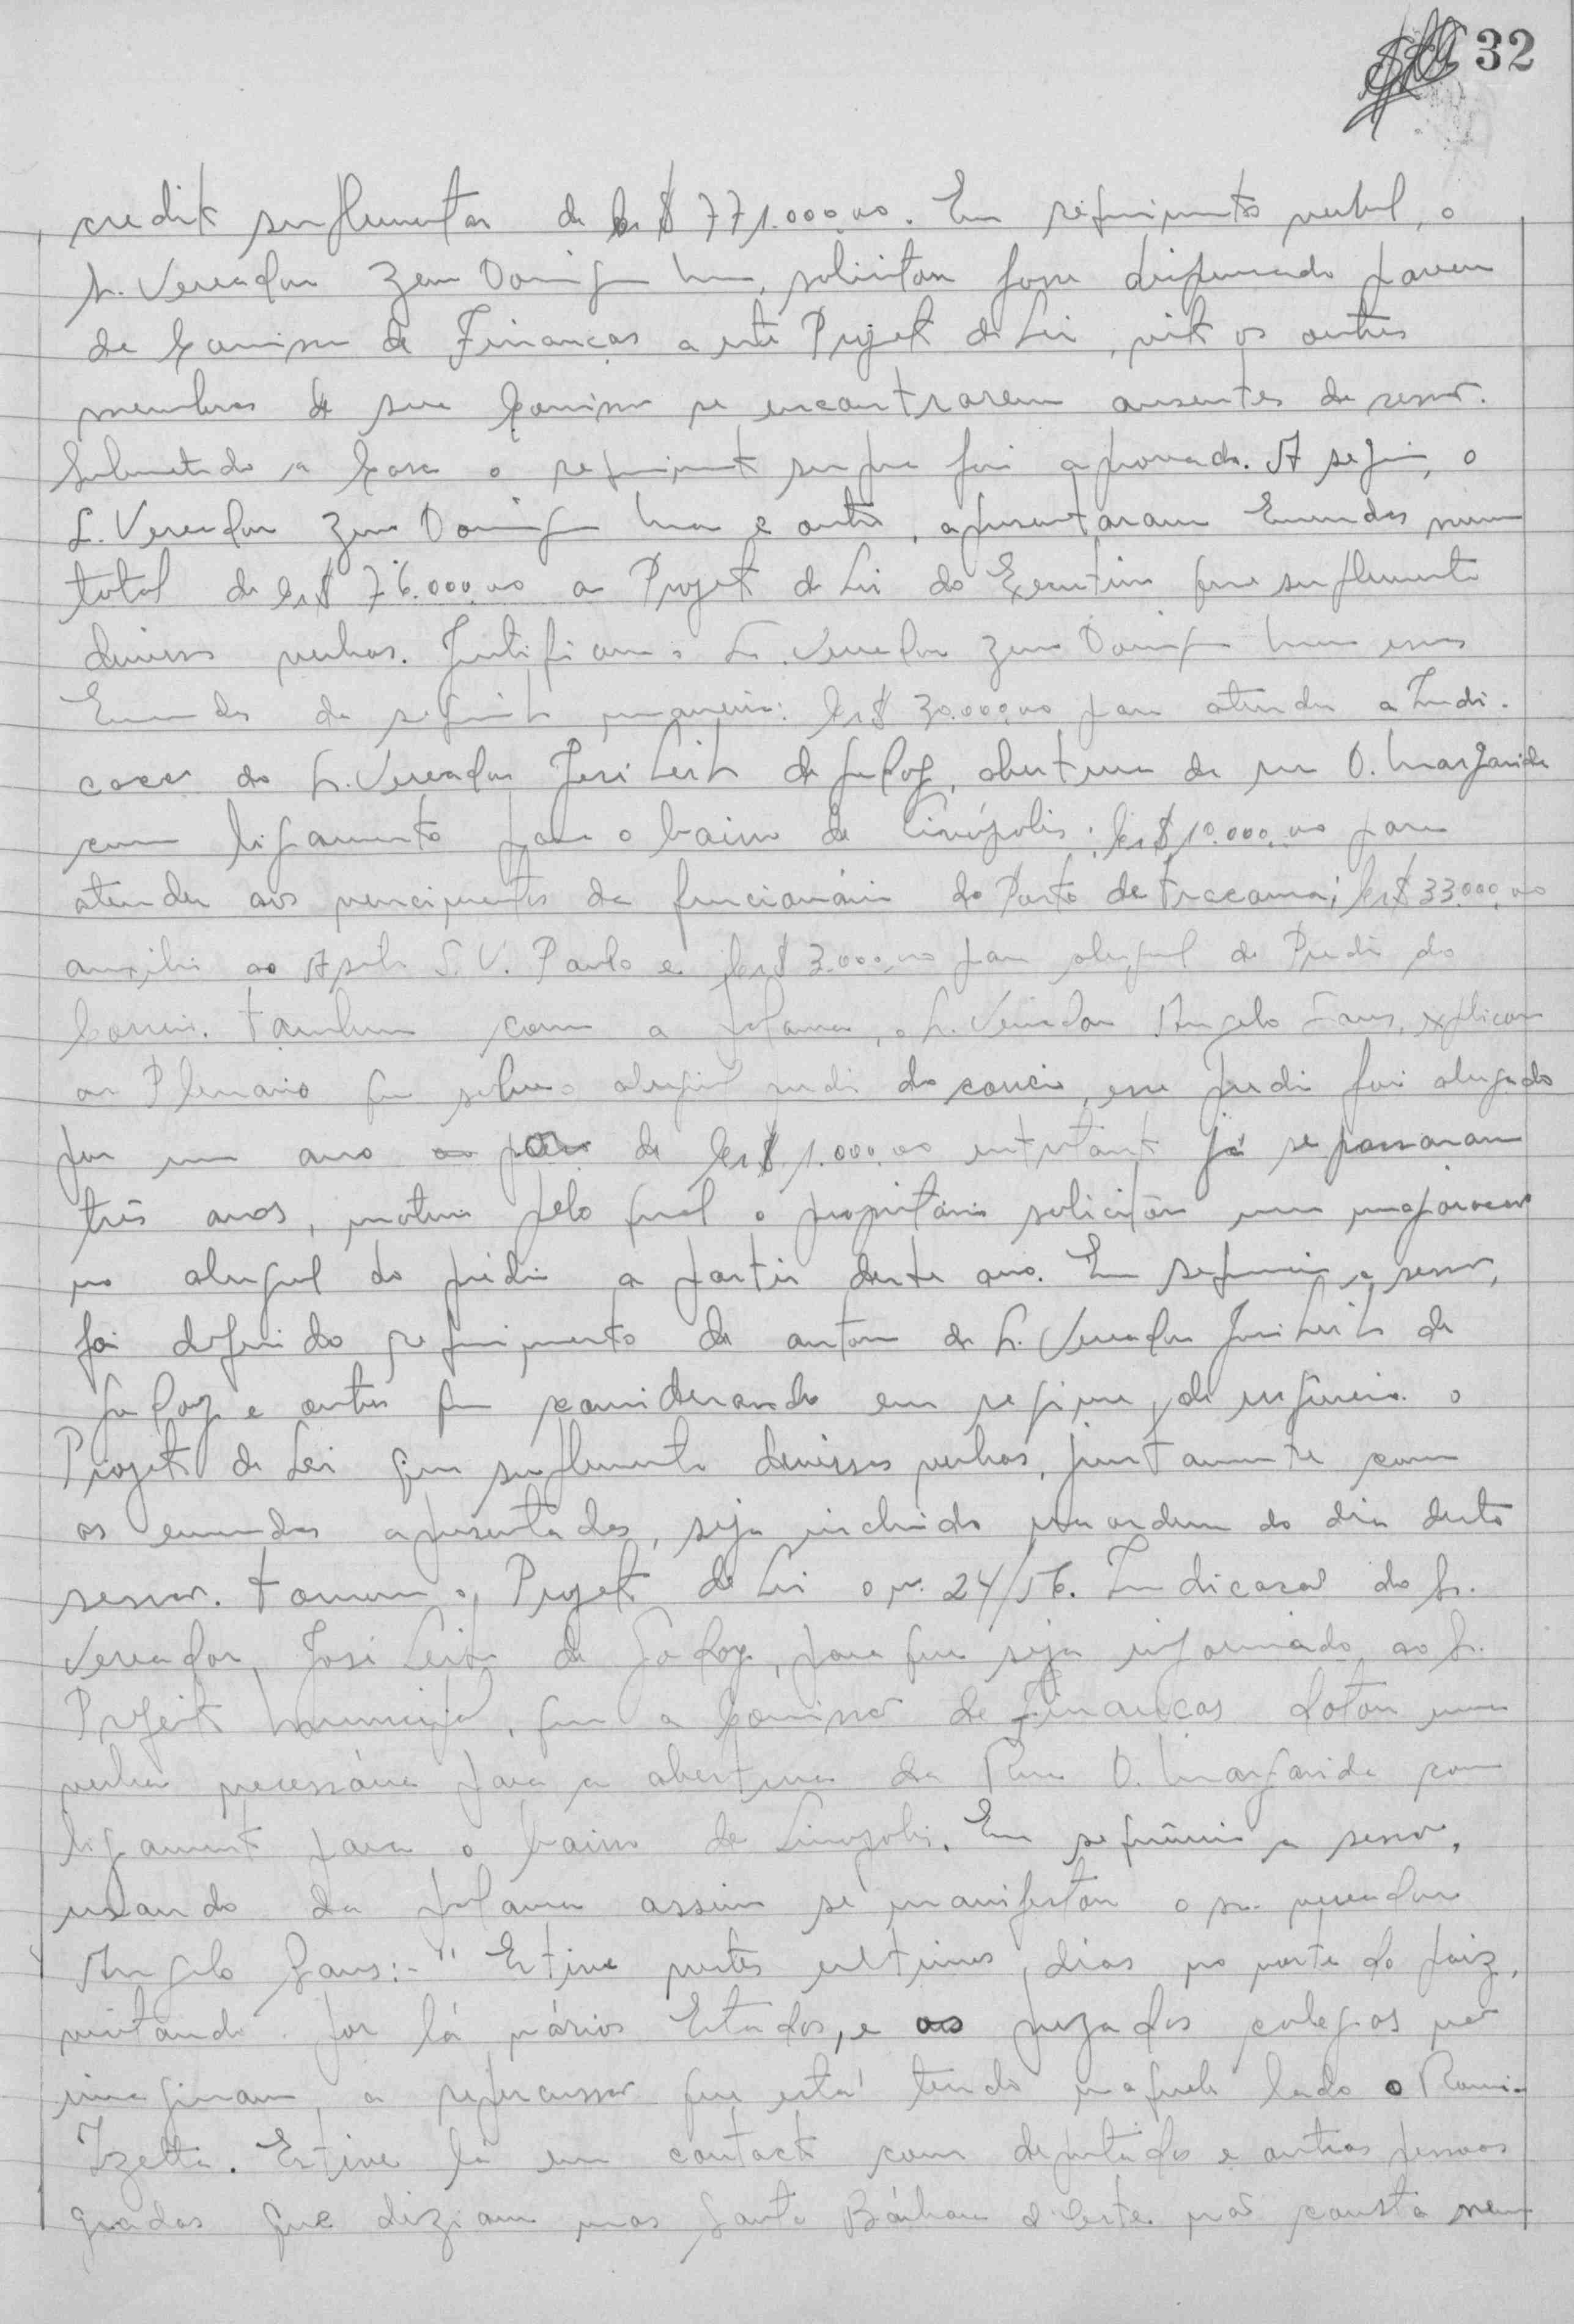 32
credito suplementar de Cr$ 771.000,00. Em requerimento verbal, o
Sr. Vereador Zeno Domingos Maia, solicitou fosse dispensado parecer
da Comissão de Finanças a este Projeto de Lei, visto os outros
membros de sua Comissão se encontrarem ausentes da sessão.
Submetido a Casa o requerimento supra foi aprovado. A seguir, o
S. Vereador Zeno Domingos Maia e outro, apresentaram Emendas num
total de Cr$ 76.000,00 ao Projeto de Lei do Executivo que suplementa
diversas verbas. Justificou o Sr. Vereador Zeno Domingos Maia essas
Emendas da seguinte maneira: Cr$ 30.000,00 para atender a Indi-
cação do Sr. Vereador José Leite de Godoy, abertura da rua D. Margarida
com ligamento para o bairro de Linópolis; Cr$ 10.000,00 para
atender aos vencimentos da funcionária do Posto de Tracoma; Cr$ 33.000,00
auxilio ao Asilo S. V. Paulo e Cr$ 3.000,00 para aluguel do Predio do
Correio. Tambem com a palavra, o Sr. Vereador Angelo Gaus, explicou
ao Plenario que sobre o aluguel predio do correio, esse predio foi alugado
por um ano de Cr$ 1.000,00 entretanto já se passaram
três anos, motivo pelo qual o proprietário solicitou uma majoração
no aluguel do prédio a partir deste ano. Em sequencia a sessão,
foi deferido requerimento de autoria do Sr. Vereador José Leite de
Godoy e outros que considerando em regime de urgência o
Projeto de Lei que suplementa diversas verbas, juntamente com
as emendas apresentadas, seja incluido na ordem do dia desta
sessão. Tomou o Projeto de Lei o nº 24/56. Indicação do Sr.
Vereador, José Leite de Godoy, para que seja informado ao Sr.
Prefeito Municipal, que a Comissão de Finanças dotou uma
verba necessária para a abertura da Rua D. Margarida com
ligamento para o bairro de Linopolis. Em sequência a sessão,
usando da palavra assim se manifestou o sr. vereador
Angelo Gaus:- "Estive nestes ultimos dias no norte do paiz,
visitando por lá vários Estados, e os prezados colegas não
imaginam a repercussão que está tendo naquele lado o Romi-
Izetta. Estive lá em contacto com deputados e outras pessoas
gradas que diziam mas Santa Bárbara d'Oeste não consta nem